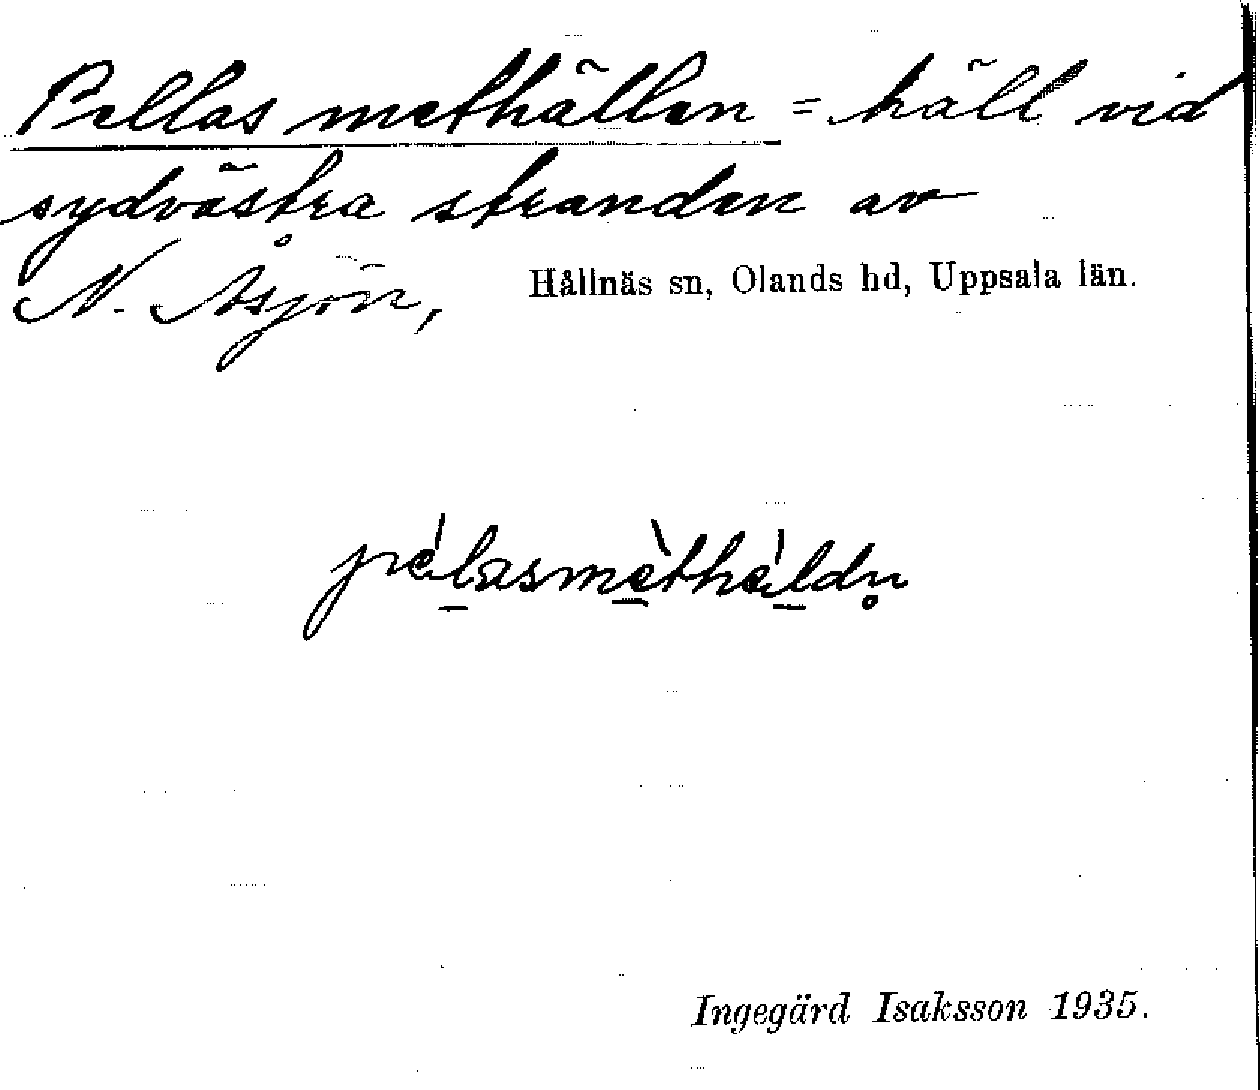 Pellas methällen = häll vid
sydvästra stranden av
N. Åsjön, Hållnäs sn, Olands hd, Uppsala län.
pe̠ ́lasme̠ ̀the̠ ́ldn̥
Ingegärd Isaksson 1935.